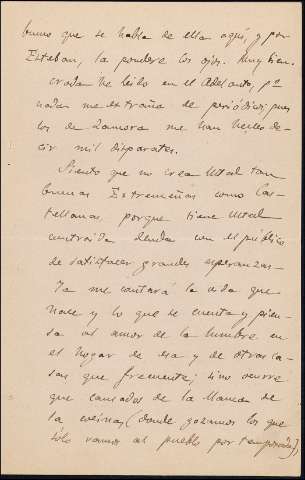 bueno que se habla de ella aquí, y por
Esteban, la pondere los ojos. Muy bien
nada he leido en el Adelanto, pª
nada me extraña de periódicos, pues
los de Zamora me han hecho de-
cir mil disparates.
Siento que no crea Usted tan
buenas Extremeñas como Cas-
tellanas, porque tiene Usted
contraida deuda con el público
de satisfacer grandes esperanzas.
Ya me contará la vida que
hace y lo que se cuenta y pien-
sa al amor de la lumbre en
el hogar de esa y de otras ca-
sas que frecuente; si no ocurre
que cansados de la llama de
la cocina, (donde gozamos los que
sólo vamos al pueblo por temporada),